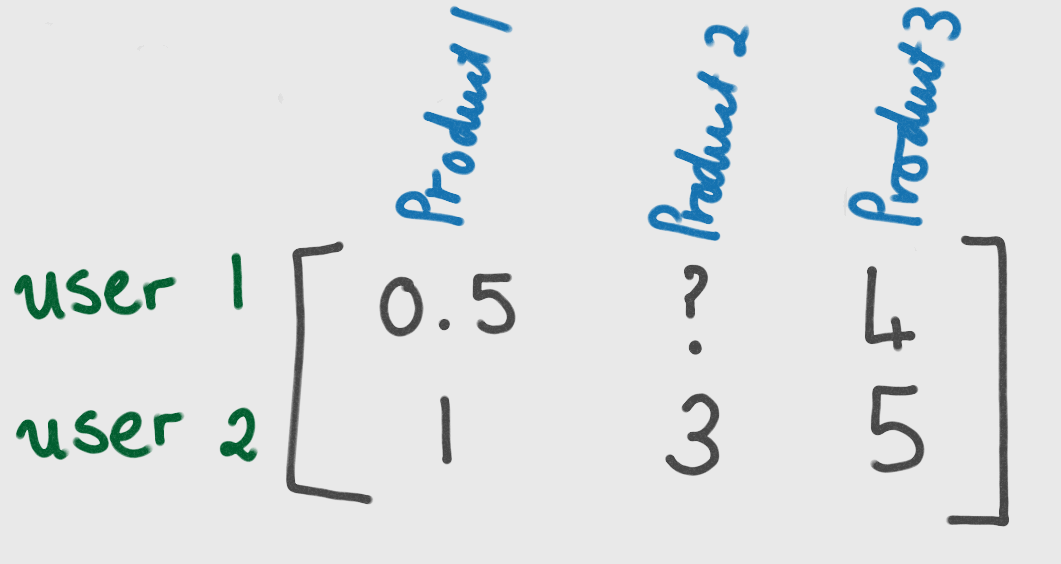 Product 1
Product 2
Product 3
user 1 0.5 ? 4
user 2 1 3 5